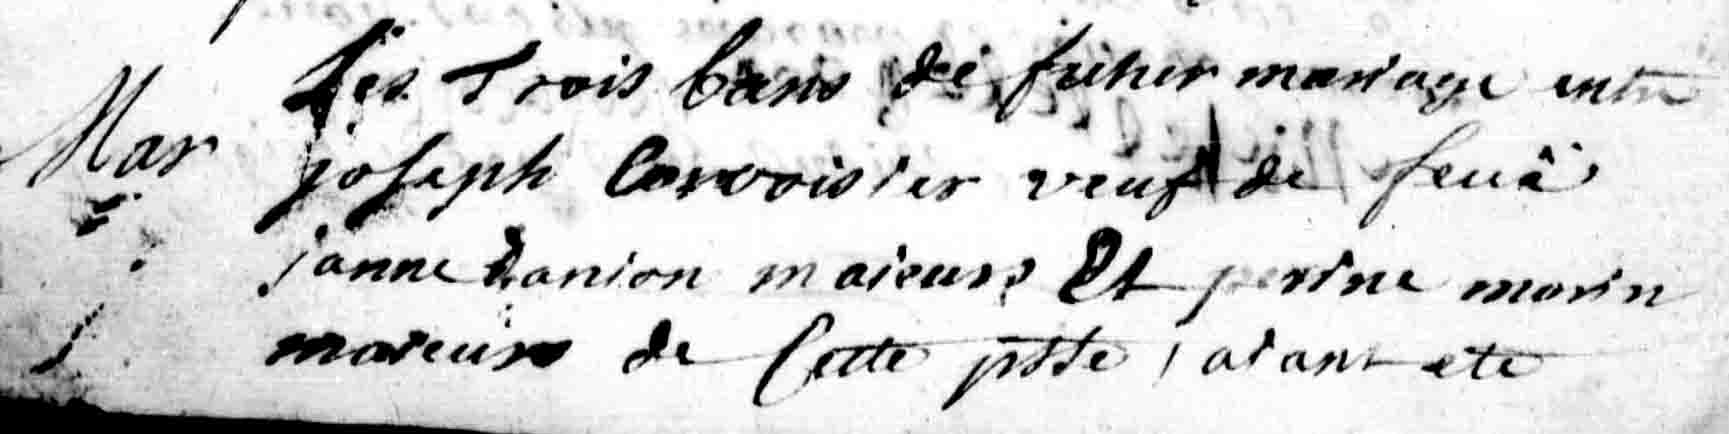 Les Trois bans de futur mariage entre
Mar joseph Corvoisier veuf de feuë
janne Danion maieurs Et perine morin
maieurs de Cette psse, aiant ete